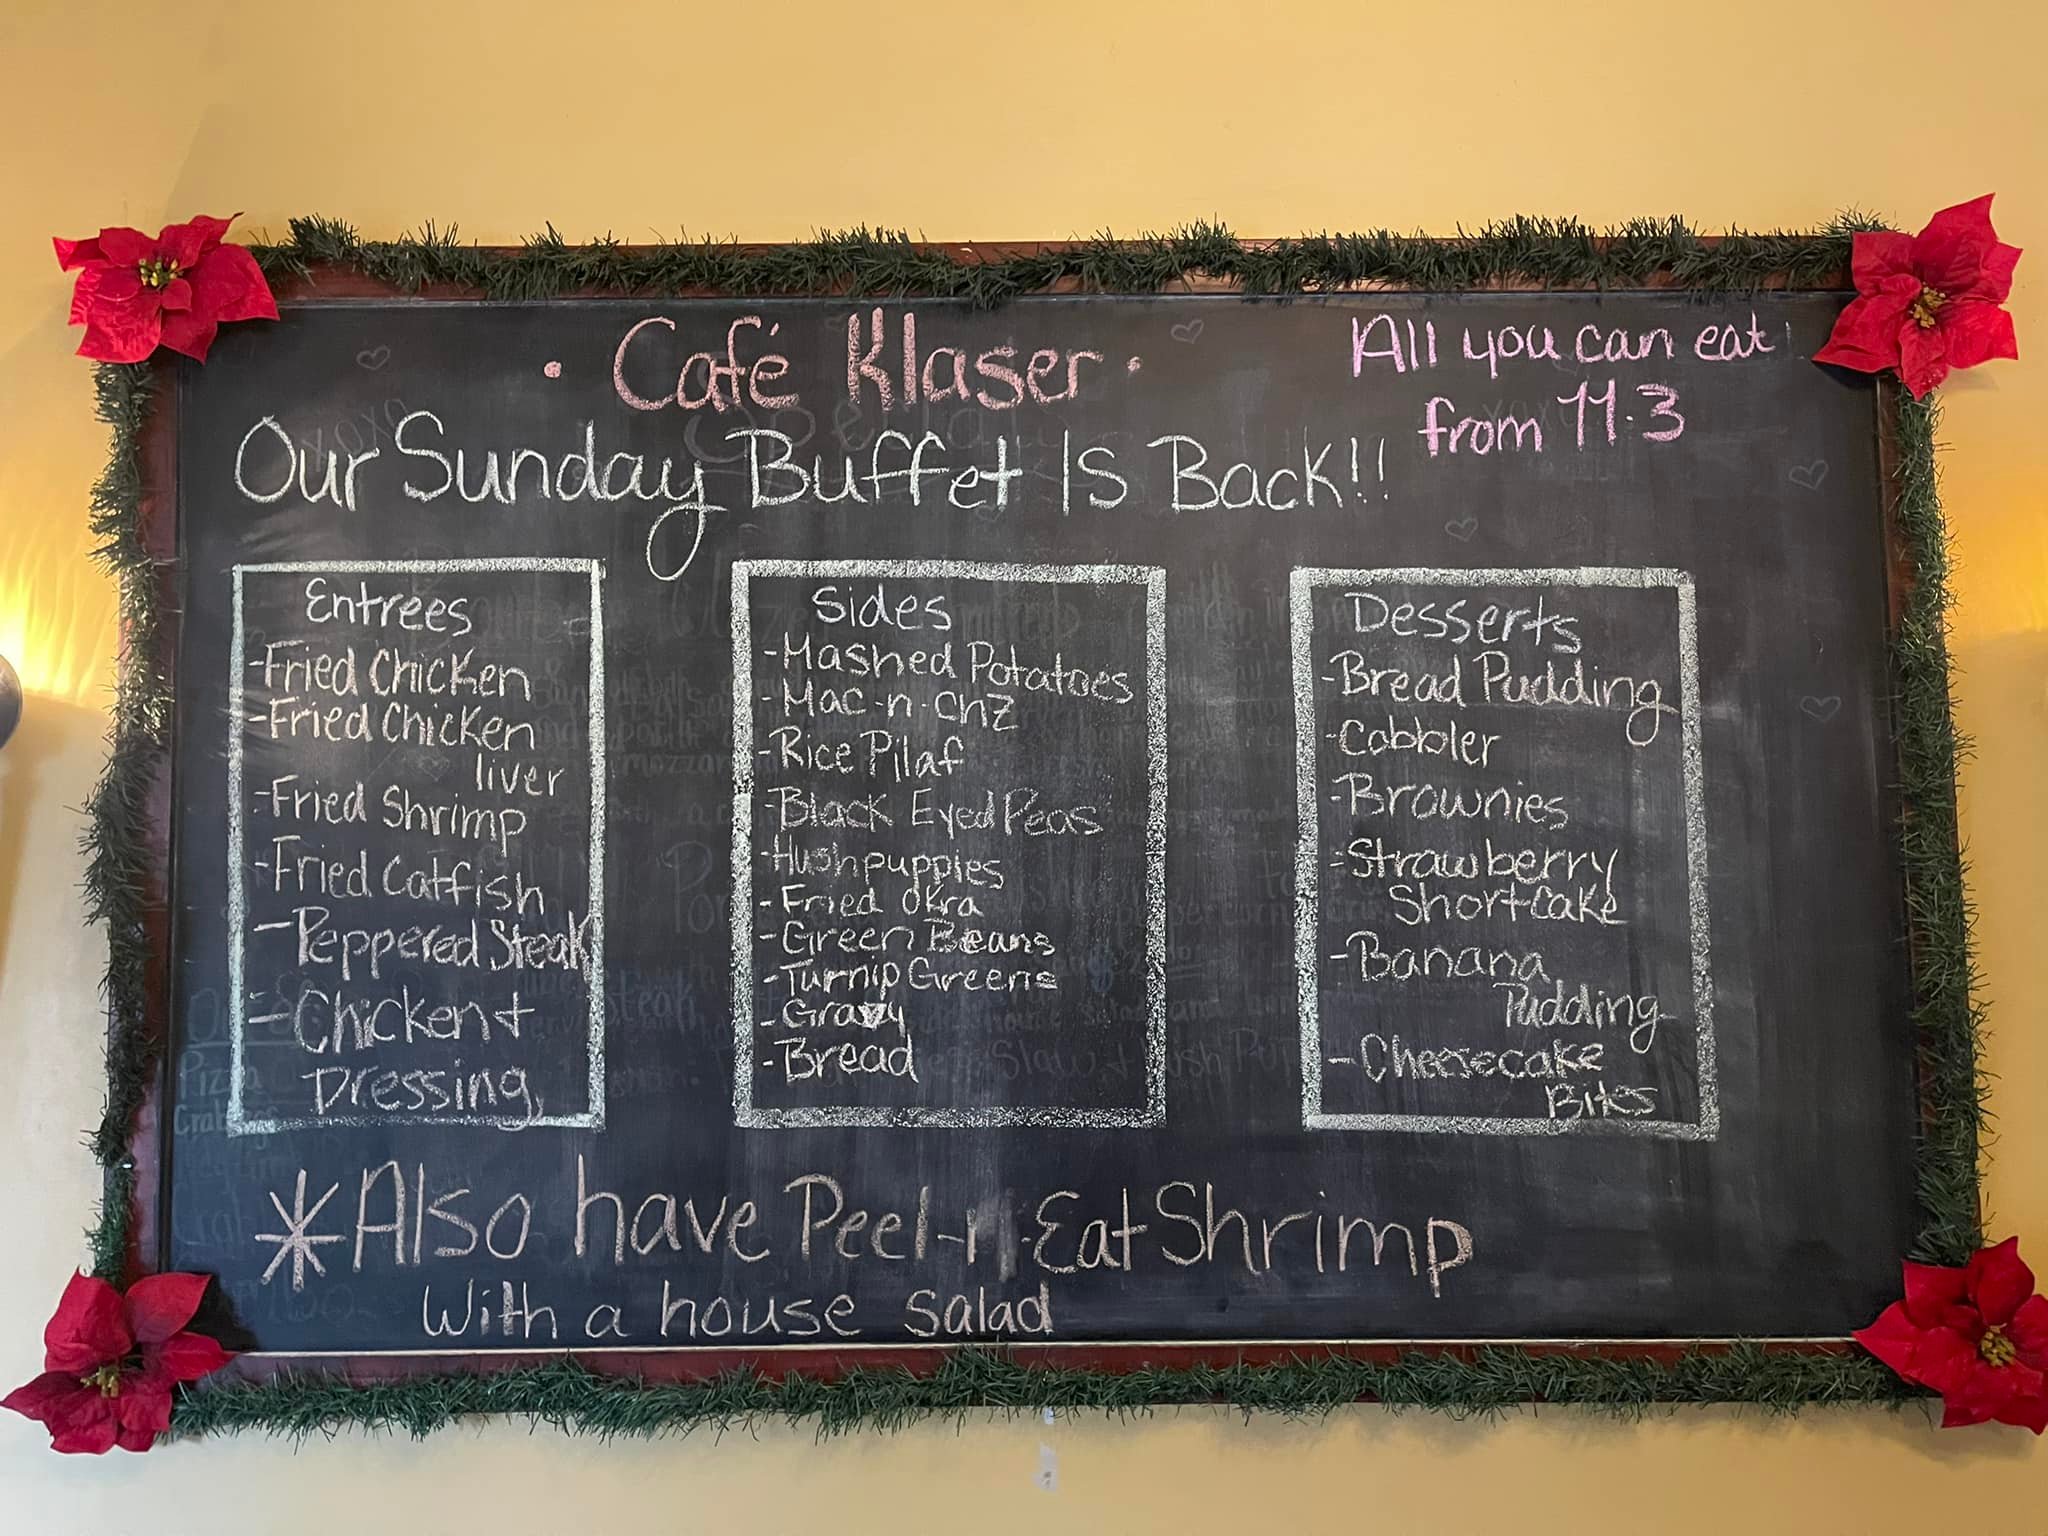 · Café Klaser ·
All you can eat
from 11-3
Our Sunday Buffet Is Back!!
Entrees
-Fried Chicken
-Fried Chicken
liver
-Fried Shrimp
-Fried Catfish
-Peppered Steak
-Chicken +
Dressing
Sides
-Mashed Potatoes
-Mac-n-chz
-Rice Pilaf
-Black Eyed Peas
-Hushpuppies
-Fried Okra
-Green Beans
-Turnip Greens
-Gravy
-Bread
Desserts
-Bread Pudding
-Cobbler
-Brownies
-Strawberry
Shortcake
-Banana
Pudding
-Cheesecake
Bites
*Also have Peel-n-Eat Shrimp
With a house salad